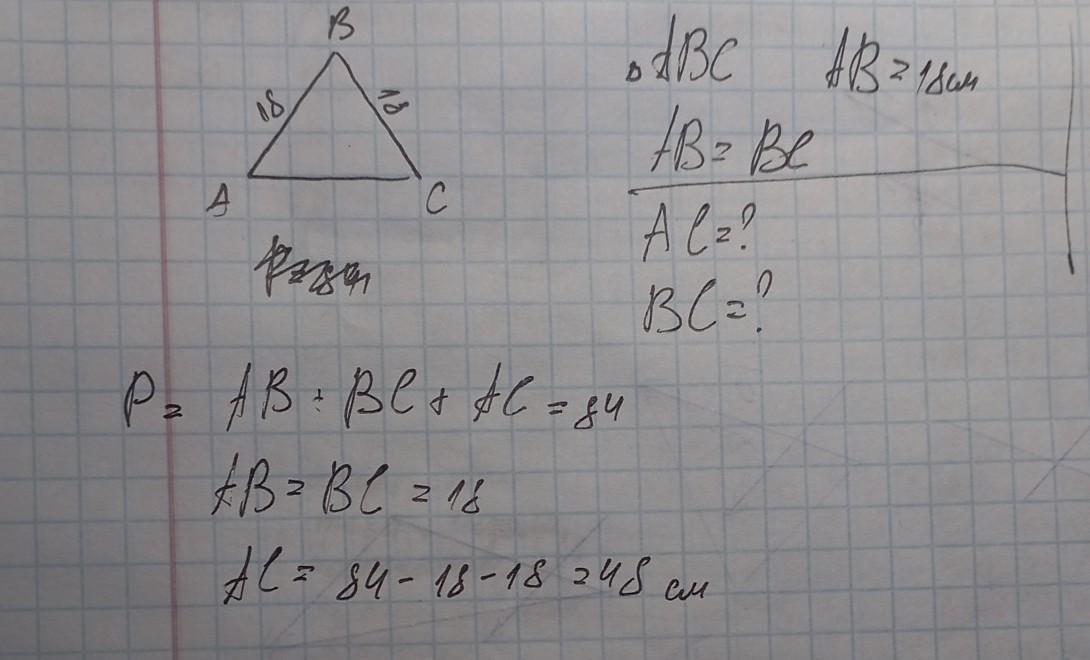 B
18
18
A
C
△ABC AB=18см
AB=BC
AC=?
BC=?
P= AB+BC+AC=84
AB=BC=18
AC=84-18-18=48 см